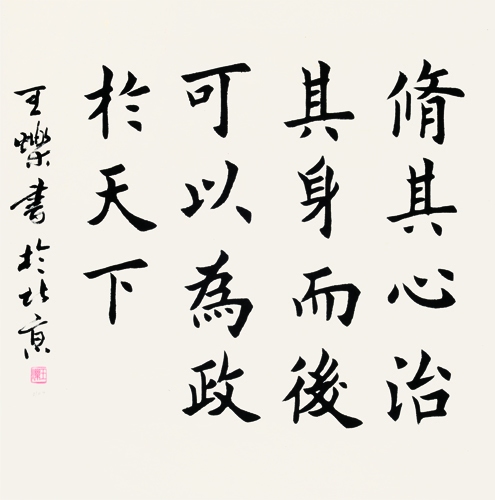 脩其心治
其身而後
可以為政
於天下
王爍書於北京